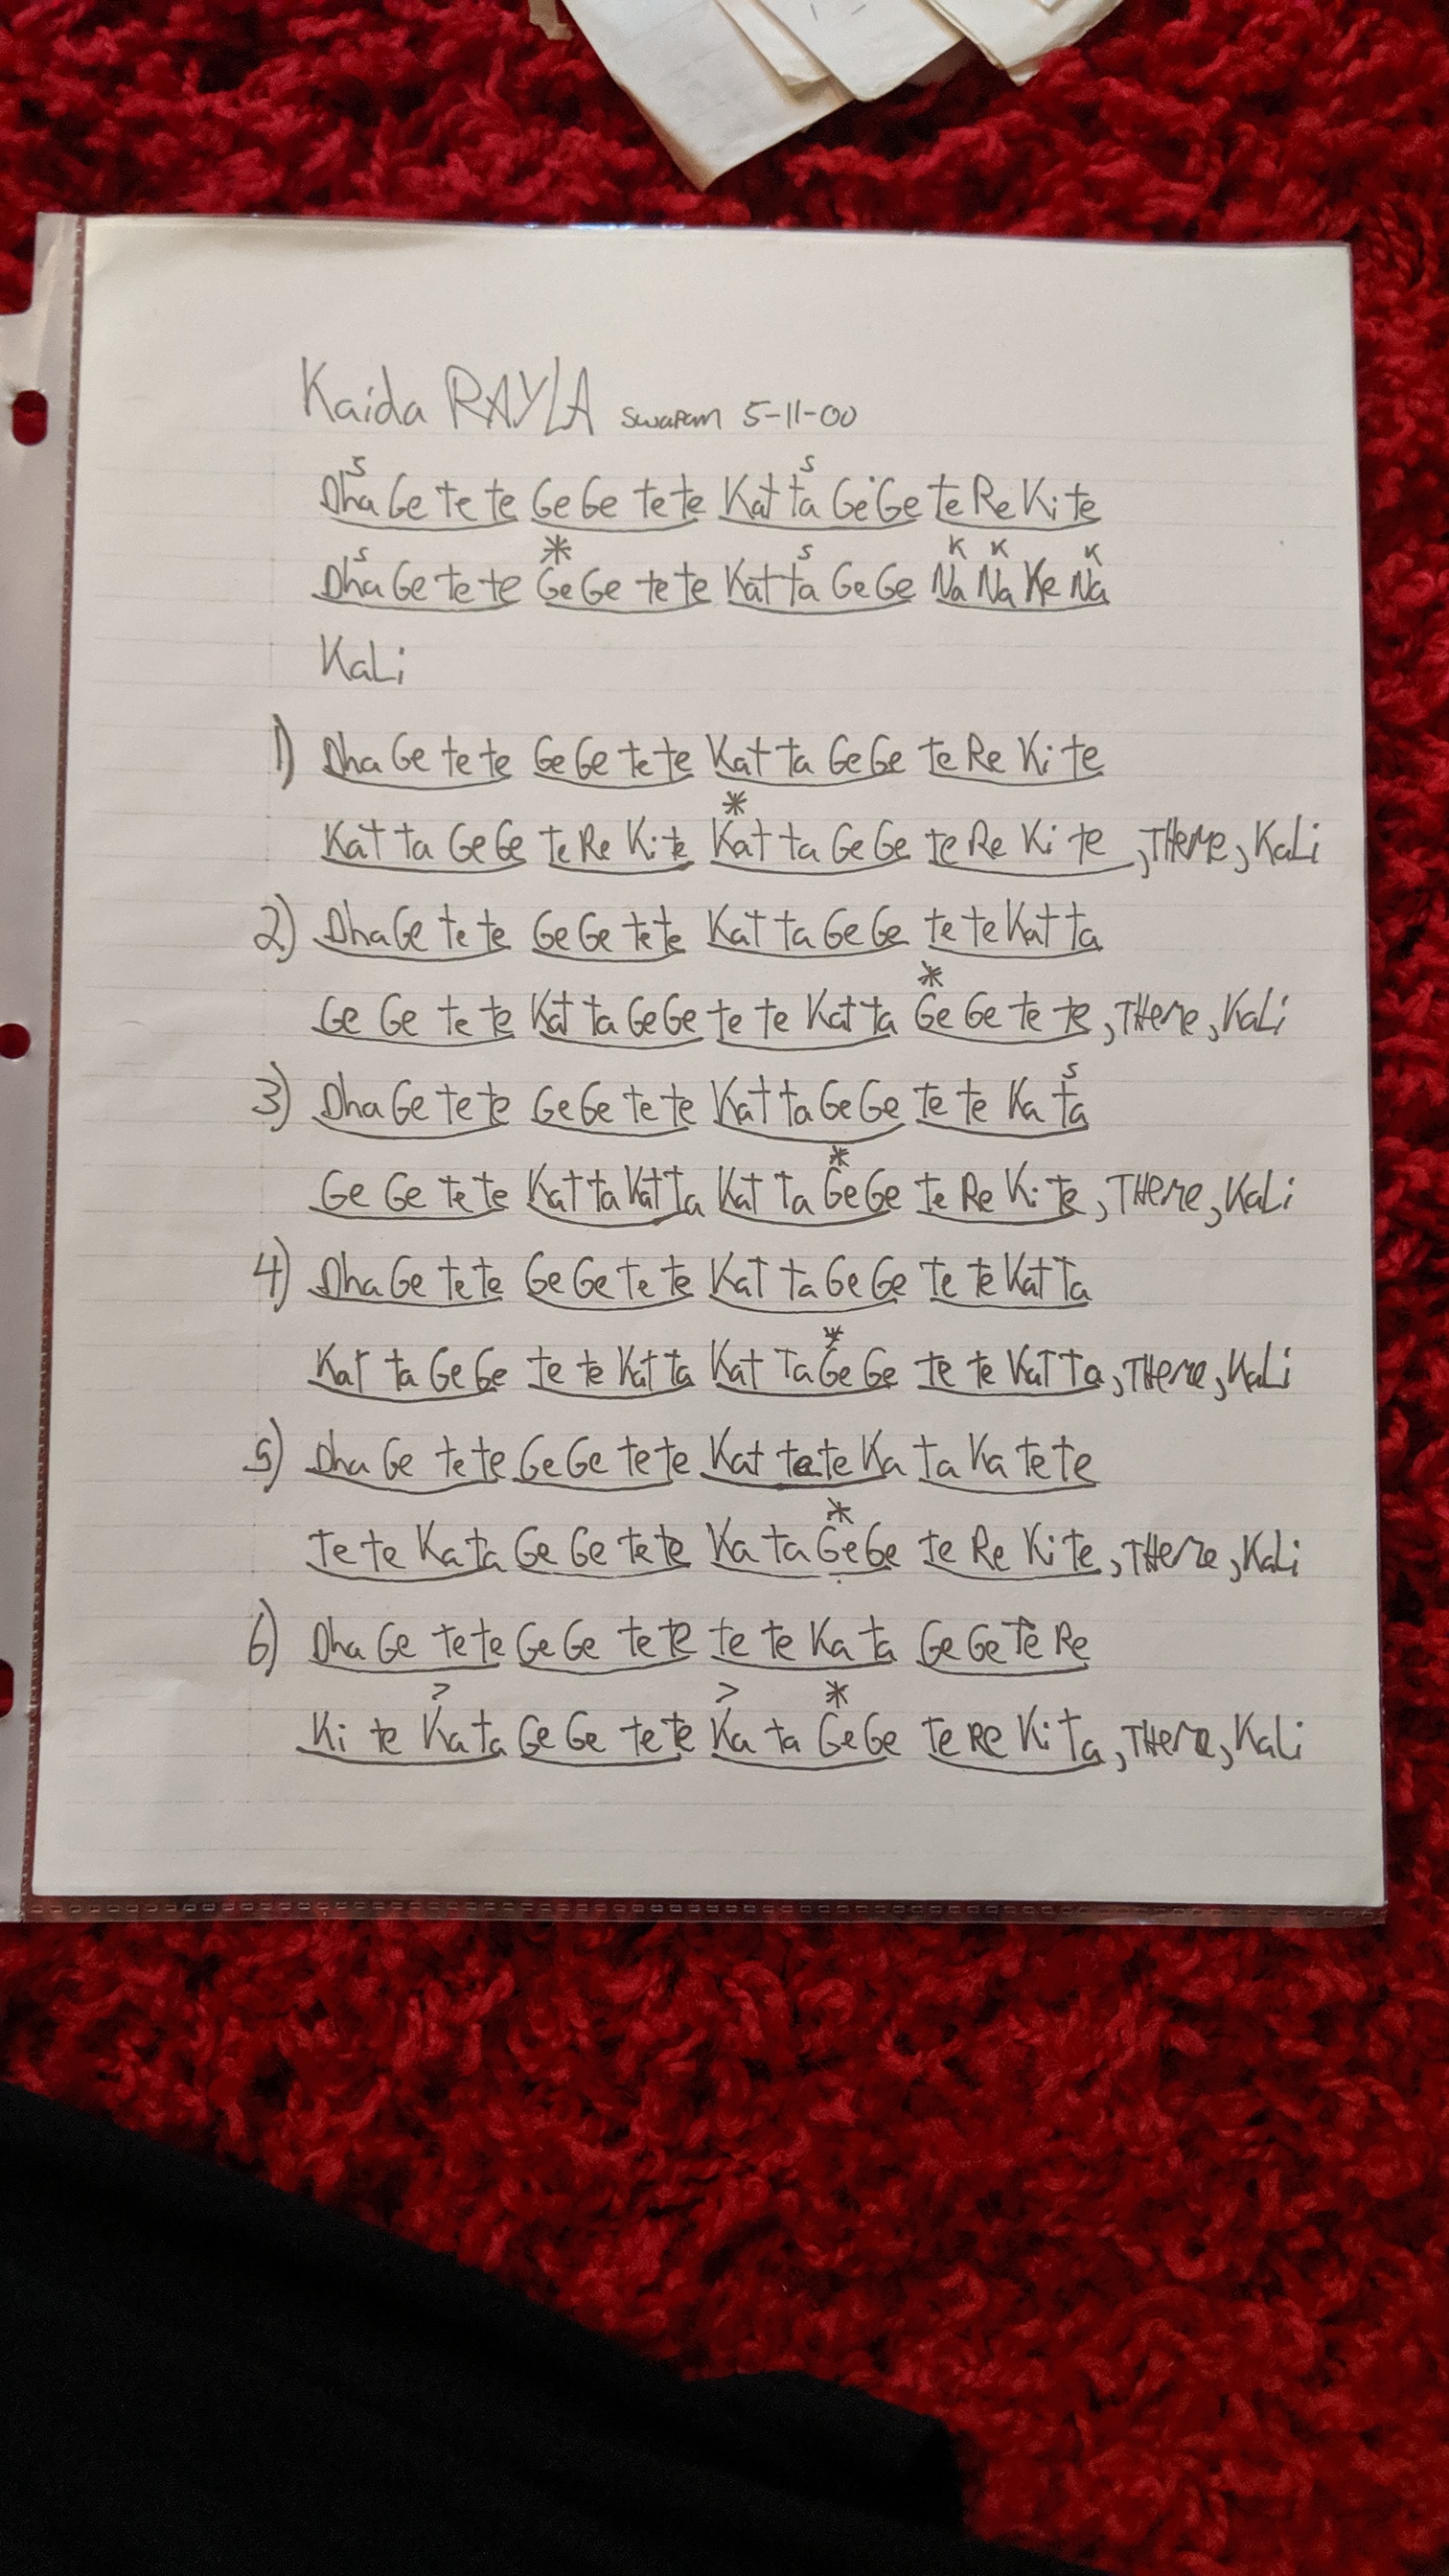 Kaida RAYLA swapan 5-11-00
S S
Dha Ge te te Ge Ge te te Kat ta Ge Ge te Re Ki te
S * S K K K
Dha Ge te te Ge Ge te te Kat ta Ge Ge Na Na Ke Na
KaLi
1) Dha Ge te te Ge Ge te te Kat ta Ge Ge te Re Ki te
*
Kat ta Ge Ge te Re Ki te Kat ta Ge Ge te Re Ki te, THeme, KaLi
2) Dha Ge te te Ge Ge te te Kat ta Ge Ge te te Kat ta
*
Ge Ge te te Kat ta Ge Ge te te Kat ta Ge Ge te te, THeme, KaLi
S
3) Dha Ge te te Ge Ge te te Kat ta Ge Ge te te Ka ta
*
Ge Ge te te Kat ta Kat ta Kat Ta Ge Ge te Re Ki te, THeme, KaLi
4) Dha Ge te te Ge Ge te te Kat ta Ge Ge te te Kat Ta
*
Kat ta Ge Ge te te Kat ta Kat Ta Ge Ge te te Kat Ta, THeme, KaLi
5) Dha Ge te te Ge Ge te te Kat te te Ka ta Ka te te
*
Te te Ka ta Ge Ge te te Ka ta Ge Ge te Re Ki te, THeme, KaLi
6) Dha Ge te te Ge Ge te te te te Ka ta Ge Ge Te Re
> > *
Ki te Ka ta Ge Ge te te Ka ta Ge Ge te RE Ki Ta, THeme, KaLi